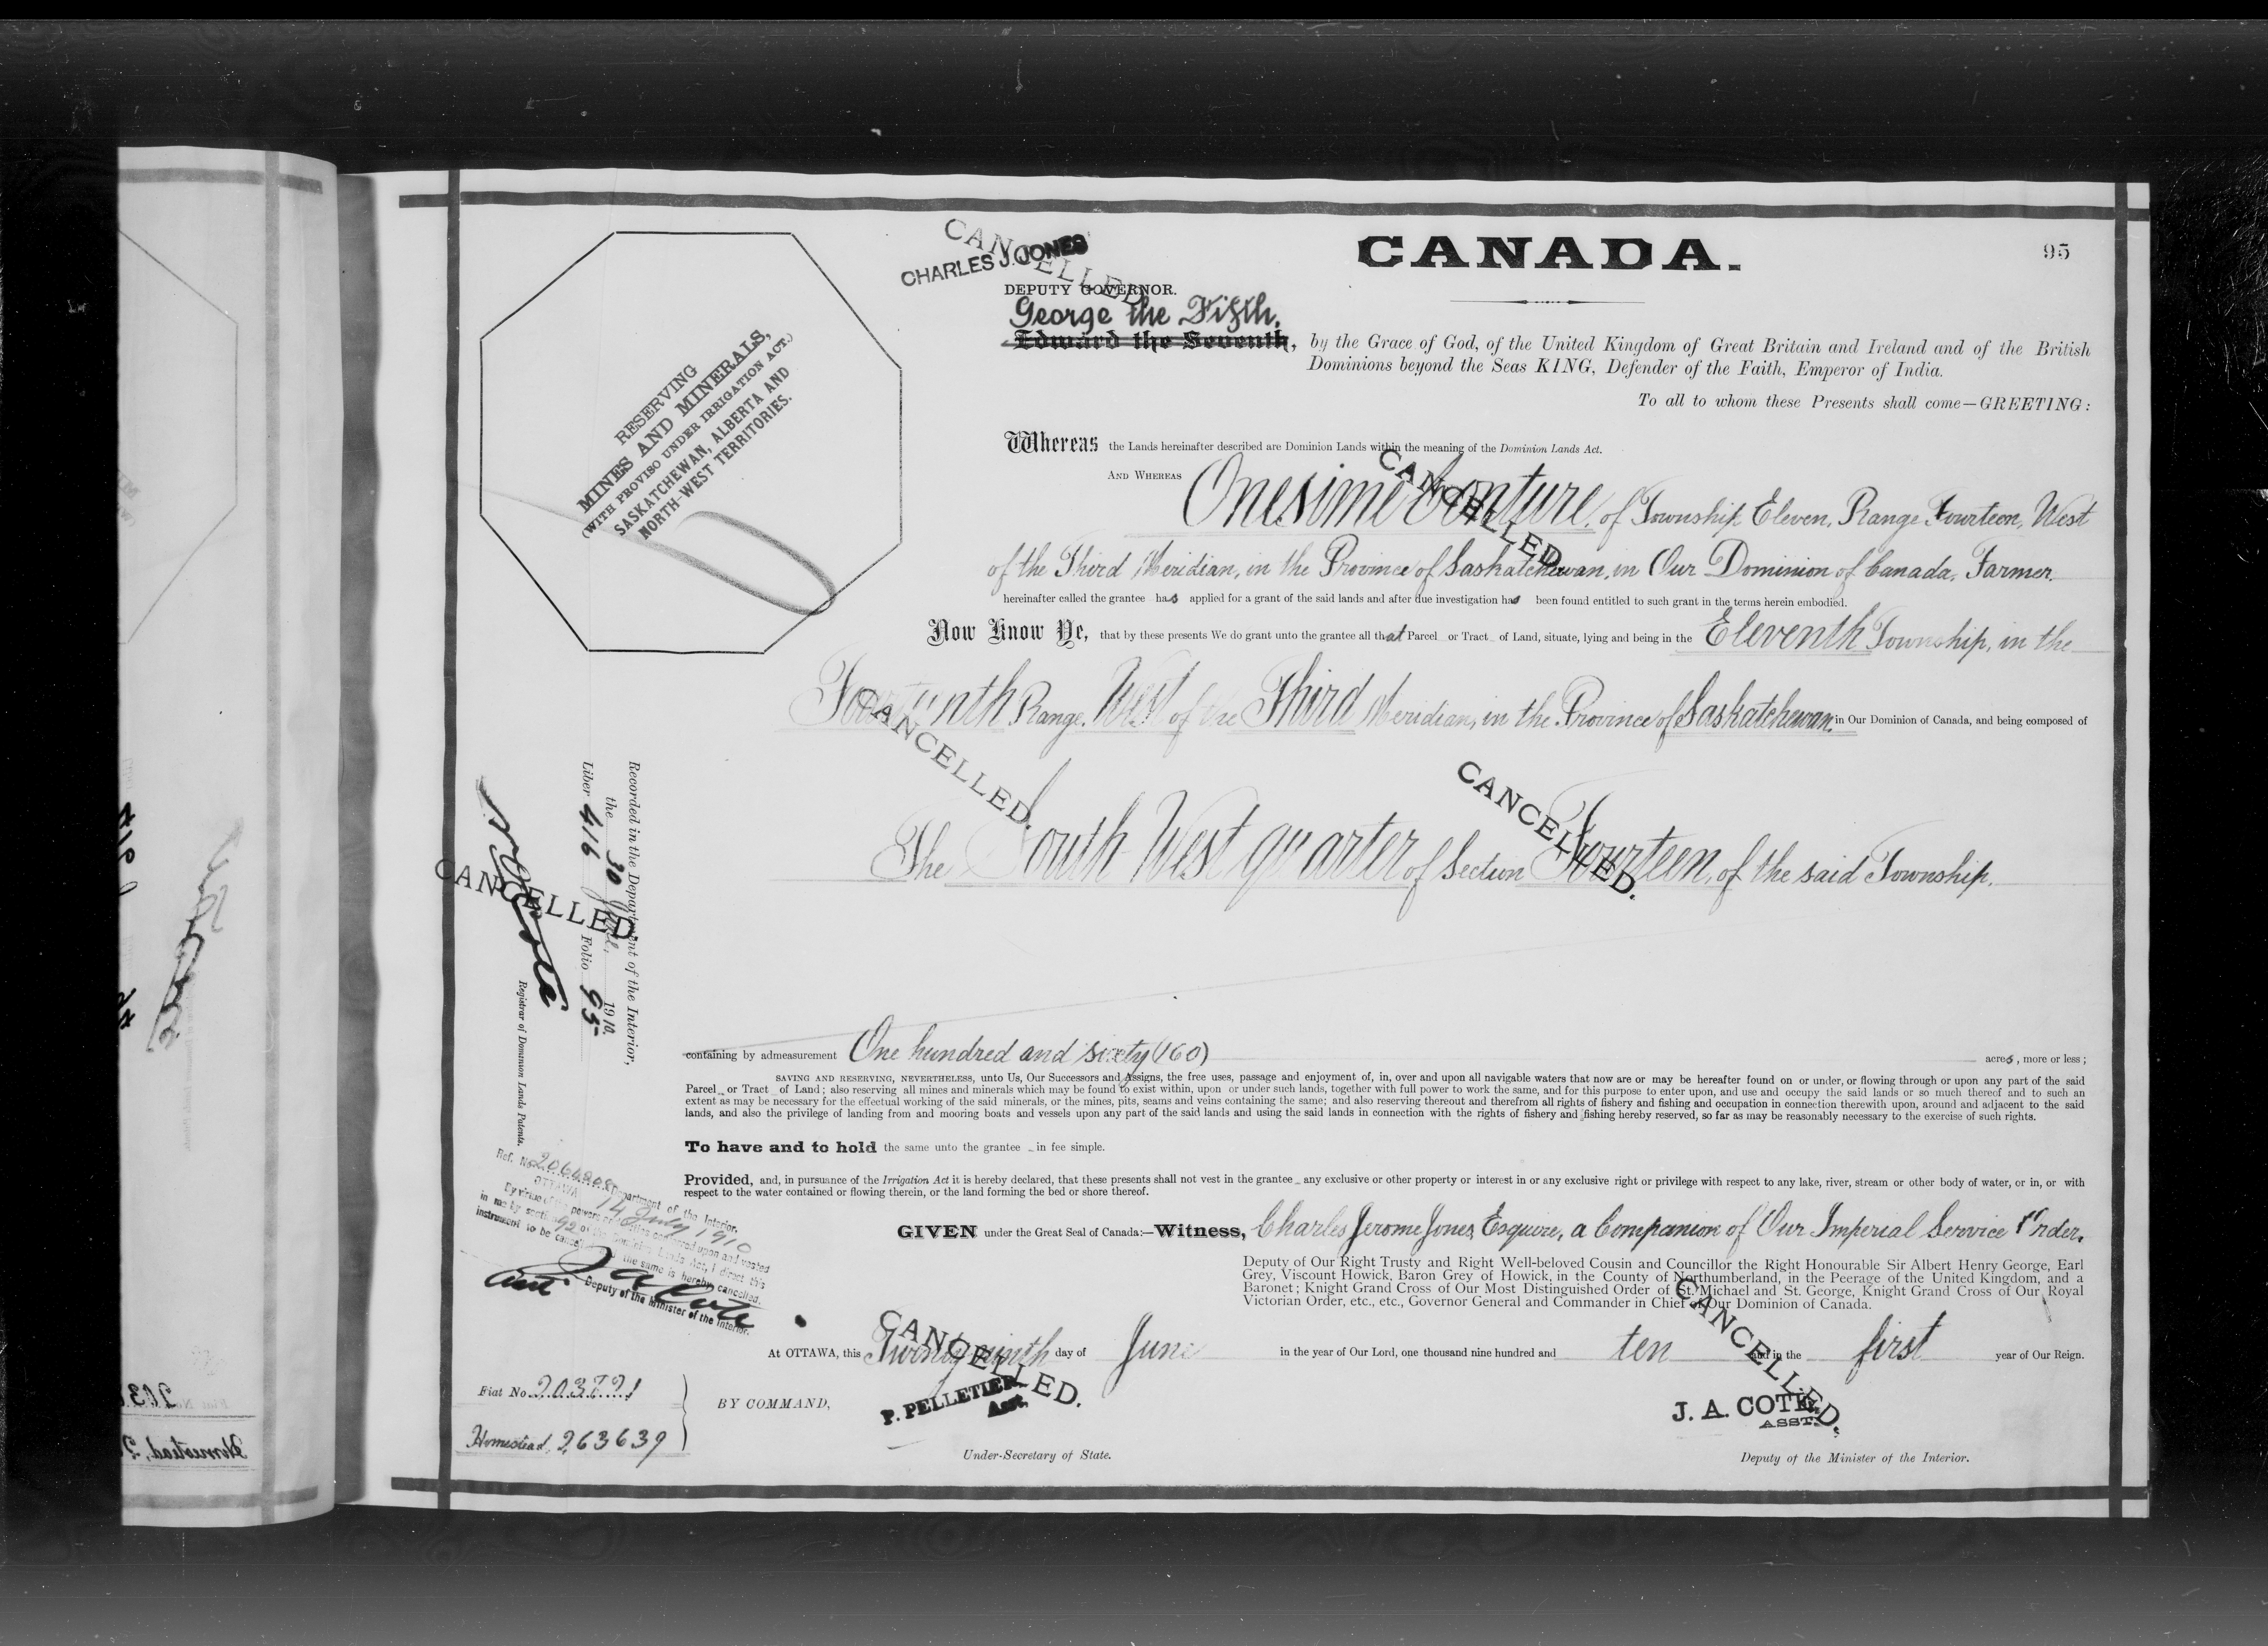 CANADA.
95
CANCELLED
CHARLES J. JONES
DEPUTY GOVERNOR.
George the Fifth,
Edward the Seventh, by the Grace of God, of the United Kingdom of Great Britain and Ireland and of the British
Dominions beyond the Seas KING, Defender of the Faith, Emperor of India.
To all to whom these Presents shall come—GREETING:
RESERVING
MINES AND MINERALS,
(WITH PROVISO UNDER IRRIGATION ACT.)
SASKATCHEWAN, ALBERTA AND
NORTH-WEST TERRITORIES.
Whereas the Lands hereinafter described are Dominion Lands within the meaning of the Dominion Lands Act.
CANCELLED.
AND WHEREAS Onesime Conture, of Township Eleven, Range Fourteen, West
of the Third Meridian, in the Province of Saskatchewan, in Our Dominion of Canada, Farmer,
hereinafter called the grantee has applied for a grant of the said lands and after due investigation has been found entitled to such grant in the terms herein embodied.
Now Know Ye, that by these presents We do grant unto the grantee all that Parcel or Tract of Land, situate, lying and being in the Eleventh Township, in the
Fourteenth Range, West of the Third Meridian, in the Province of Saskatchewan, in Our Dominion of Canada, and being composed of
CANCELLED.
CANCELLED.
The South West quarter of Section Fourteen, of the said Township.
Recorded in the Department of the Interior,
the 30 1910.
Liber 416 Folio 95
CANCELLED
Registrar of Dominion Lands Patents.
containing by admeasurement One hundred and sixty (160) acres, more or less;
SAVING AND RESERVING, NEVERTHELESS, unto Us, Our Successors and Assigns, the free uses, passage and enjoyment of, in, over and upon all navigable waters that now are or may be hereafter found on or under, or flowing through or upon any part of the said
Parcel or Tract of Land; also reserving all mines and minerals which may be found to exist within, upon or under such lands, together with full power to work the same, and for this purpose to enter upon, and use and occupy the said lands or so much thereof and to such an
extent as may be necessary for the effectual working of the said minerals, or the mines, pits, seams and veins containing the same; and also reserving thereout and therefrom all rights of fishery and fishing and occupation in connection therewith upon, around and adjacent to the said
lands, and also the privilege of landing from and mooring boats and vessels upon any part of the said lands and using the said lands in connection with the rights of fishery and fishing hereby reserved, so far as may be reasonably necessary to the exercise of such rights.
To have and to hold the same unto the grantee in fee simple.
Provided, and, in pursuance of the Irrigation Act it is hereby declared, that these presents shall not vest in the grantee any exclusive or other property or interest in or any exclusive right or privilege with respect to any lake, river, stream or other body of water, or in, or with
respect to the water contained or flowing therein, or the land forming the bed or shore thereof.
Ref. No.
Department of the Interior,
OTTAWA, 14 July 1910
By virtue of the powers conferred upon and vested
in me by section 92 of the Dominion Lands Act, I direct this
instrument to be cancelled the same is hereby cancelled.
J A Cote
Asst. Deputy of the Minister of the Interior.
GIVEN under the Great Seal of Canada:—Witness, Charles Jerome Jones, Esquire, a Companion of Our Imperial Service Order,
Deputy of Our Right Trusty and Right Well-beloved Cousin and Councillor the Right Honourable Sir Albert Henry George, Earl
Grey, Viscount Howick, Baron Grey of Howick, in the County of Northumberland, in the Peerage of the United Kingdom, and a
Baronet; Knight Grand Cross of Our Most Distinguished Order of St. Michael and St. George, Knight Grand Cross of Our Royal
Victorian Order, etc., etc., Governor General and Commander in Chief of Our Dominion of Canada.
CANCELLED.
CANCELLED.
At OTTAWA, this Twenty ninth day of June in the year of Our Lord, one thousand nine hundred and ten and in the first year of Our Reign.
Fiat No.
Homestead, 263639
BY COMMAND,
P. PELLETIER
Asst.
Under-Secretary of State.
J. A. COTE,
ASST.
Deputy of the Minister of the Interior.